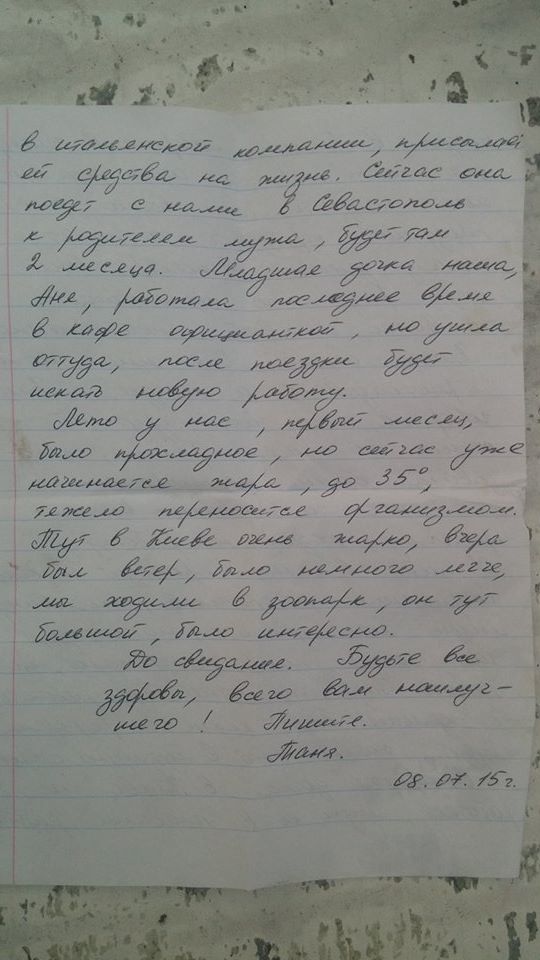 в итальянской компании, присылает
ей средства на жизнь. Сейчас она
поедет с нами в Севастополь
к родителем мужа, будет там
2 месяца. Младшая дочка наша,
Аня, работала последнее время
в кафе официанткой, но ушла
оттуда, после поездки будет
искать новую работу.
Лето у нас, первый месяц,
было прохладное, но сейчас уже
начинается жара, до 35°,
тяжело переносится организмом.
Тут в Киеве очень жарко, вчера
был ветер, было немного легче,
мы ходили в зоопарк, он тут
большой, было интересно.
До свидание. Будьте все
здоровы, всего вам наилуч-
шего! Пишите.
Таня.
08.07.15г.